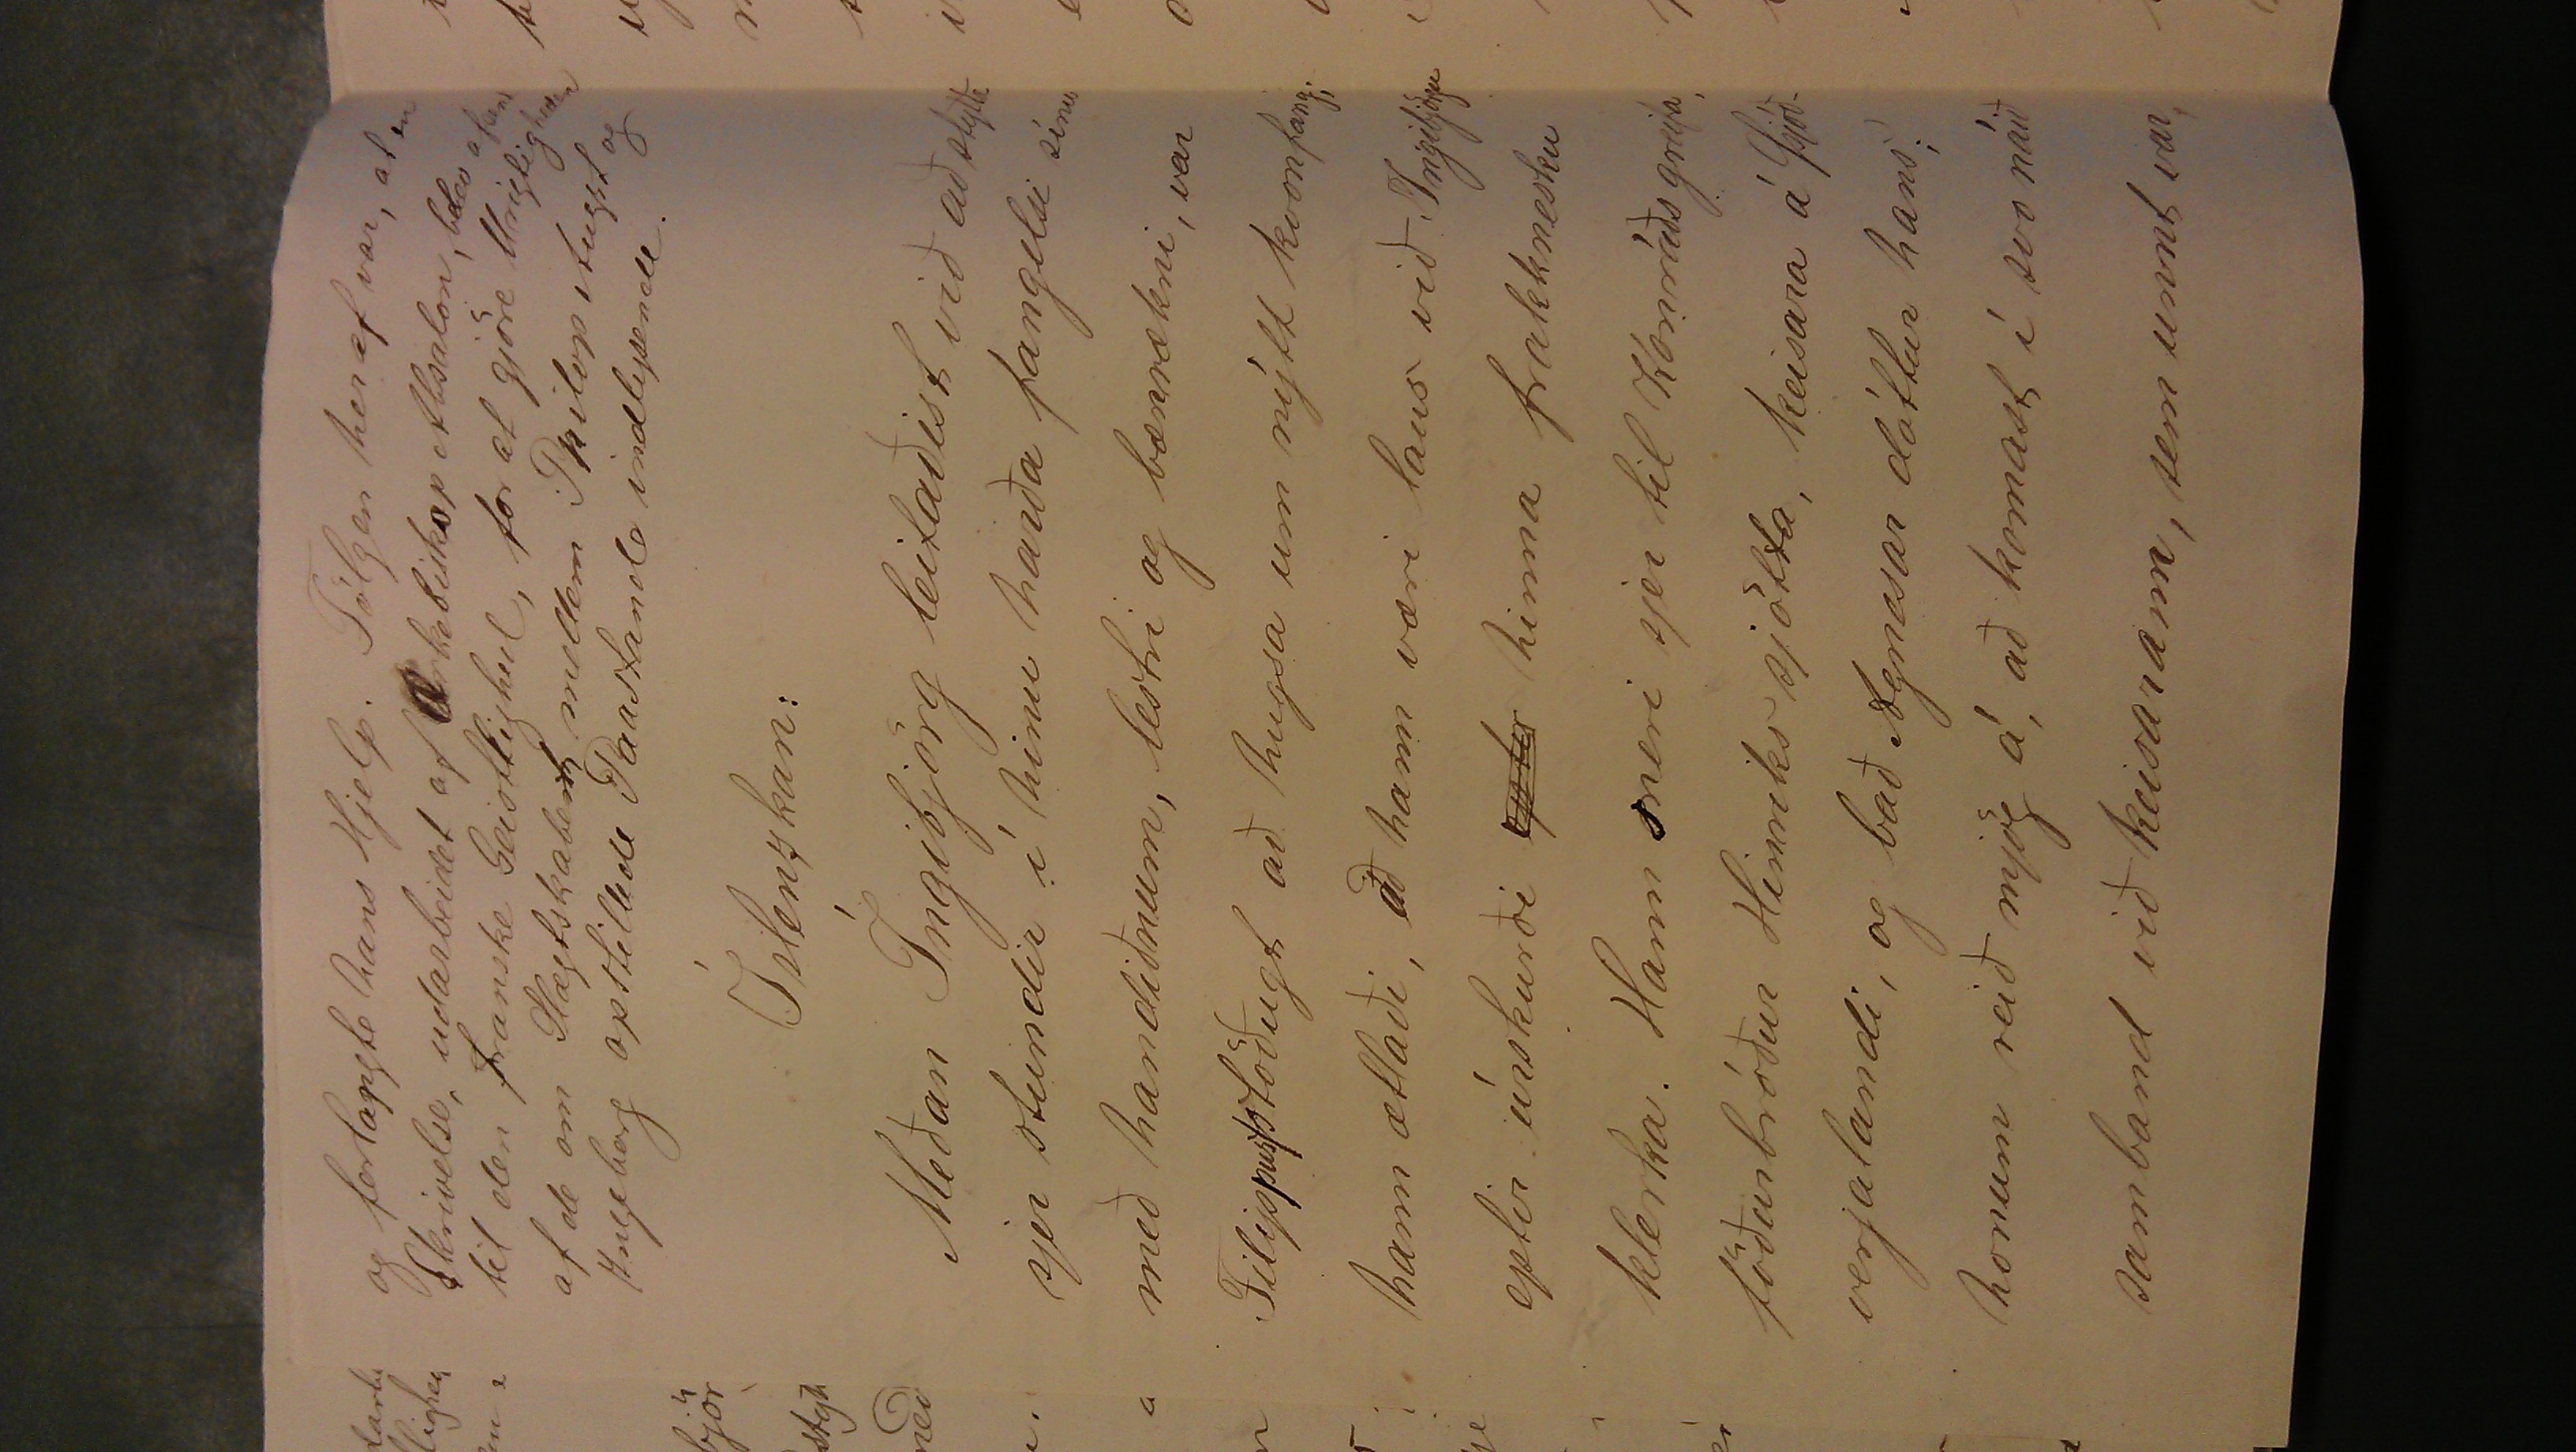 og forlangte hans Hjelp. Følgen her af var, at en
Skrivelse, udarbeidet af Erkebiskop Absalon, blev afsendt
til den franske Geistlighed, for at gjöre Urigtigheden
af de om Slægtskabet mellem Philip August og
Ingeborg opstillede Paastande indlysende.
Íslenzkan:
Meðan Ingibjörg leitaðist við að stytta
sjer stundir í hinu harða fangelsi sínu
með handiðnum, lestri og bænrækni, var
Filippus stöðugt að hugsa um nýtt kvonfang;
hann ætlaði, að hann væri laus við Ingibjörgu
eptir úrskurði hinna frakknesku
klerka. Hann sneri sjer til Konráðs greifa,
föðurbróður Hinriks sjötta, keisara á Þjóð-
verjalandi, og bað Agnesar dóttur hans;
honum reið mjög á, að komast í svo náið
samband við keisarann, sem unnt var,